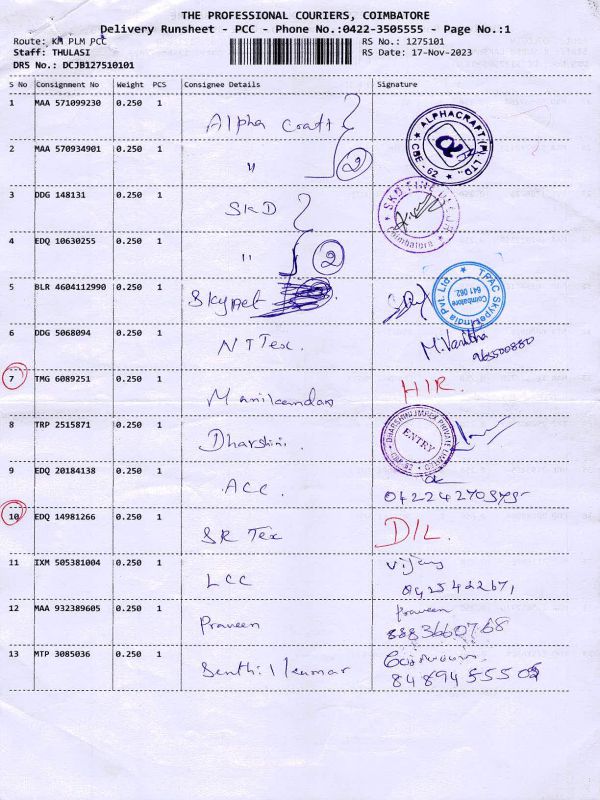 THE PROFESSIONAL COURIERS, COIMBATORE
Delivery Runsheet - PCC - Phone No.:0422-3505555 - Page No.:1
Route: KM PLM PCC
Staff: THULASI
DRS No.: DCJB127510101
RS No.: 1275101
RS Date: 17-Nov-2023
S No Consignment No Weight PCS Consignee Details Signature
1 MAA 571099230 0.250 1 Alpha Craft
ALPHACRAFT (P) LTD., CBE - 62
2 MAA 570934901 0.250 1 " 2
3 DDG 148131 0.250 1 SKD
SKD Coimbatore
4 EDQ 10630255 0.250 1 " 2
5 BLR 4604112990 0.250 1 Skypet
TPAC Skypet India Pvt. Ltd. Coimbatore 641 062
6 DDG 5068094 0.250 1 NTTex. M. Vanitha
7 TMG 6089251 0.250 1 Manikandan HIR.
8 TRP 2515871 0.250 1 Dharshini.
DHARSHINI IMPEX PRIVATE ENTRY
9 EDQ 20184138 0.250 1 ACC.
10 EDQ 14981266 0.250 1 SR Tex D/L.
11 IXM 505381004 0.250 1 LCC Vijay
12 MAA 932389605 0.250 1 Praveen Praveen
8883660768
13 MTP 3085036 0.250 1 Senthilkumar